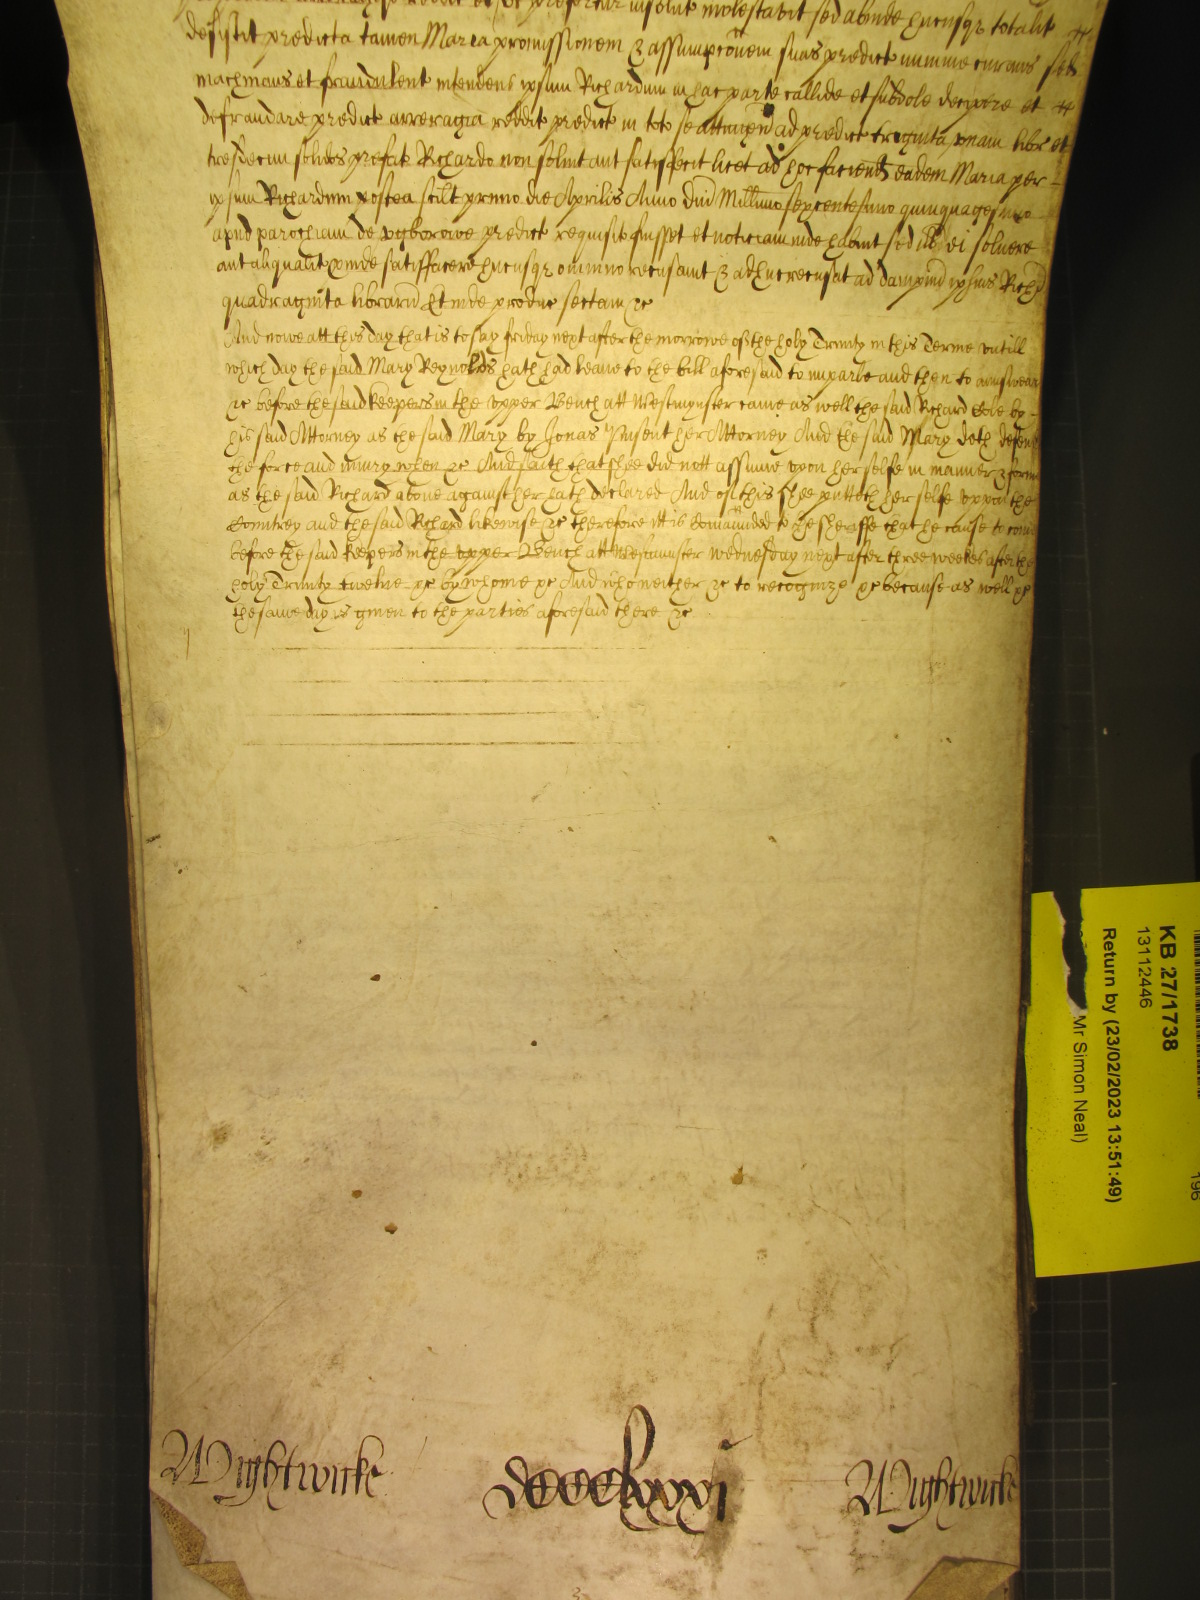 desistit predicta tamen Maria promissionem & assumpcoem suas predict minime curans sed
machinans et fraudulent intendens ipsum Richardum in hac parte callide et subdole decipere et
defraudare predict arreragia reddit predict in toto se attingen ad predict triginta unam libr et
tresdecim solidos prefat Richardo non solvit aut satisfecit licet ad hoc faciend eadem Maria per
ipsum Richardum postea scilt primo die Aprilis Anno Dni Millimo sexcentesimo quinquagesimo
apud parochiam de Ugborowe predict requisit fuisset et noticiam inde habuit sed ill ei solvere
aut aliqualit inde satisfacere hucusqz omnino recusavit & adhuc recusat ad dampnu ipsius Richi
quadraginta libraru Et inde produc sectam &c
And nowe att this day that is to say friday next after the morrowe of the holy Trinity in this Terme untill
which day the said Mary Reynolds hath had leave to the bill aforesaid to imparle and then to answear
&c before the said keepers in the upper Bench att Westmynster came as well the said Richard Cole by
his said Attorney as the said Mary by Jonas Pinsent her Attorney And the said Mary doth defend
the force and iniury when &c And saith that shee did nott assume upon her selfe in manner & forme
as the said Richard above against her hath declared And of this shee putteth her selfe uppon the
Countrey and the said Richard likewise &c therefore itt is Comaunded to the sheriffe that he cause to come
before the said keepers in the upper Bench att Westminster wednesday next after three weekes after the
holy Trinity twelve &c by whome &c And who neither &c to recognize &c because as well &c
the same day is given to the parties aforesaid there &c
Wightwicke dccclxxxi Wightwicke
KB 27/1738
13112446
Return by (23/02/2023 13:51:49)
Mr Simon Neal)
196